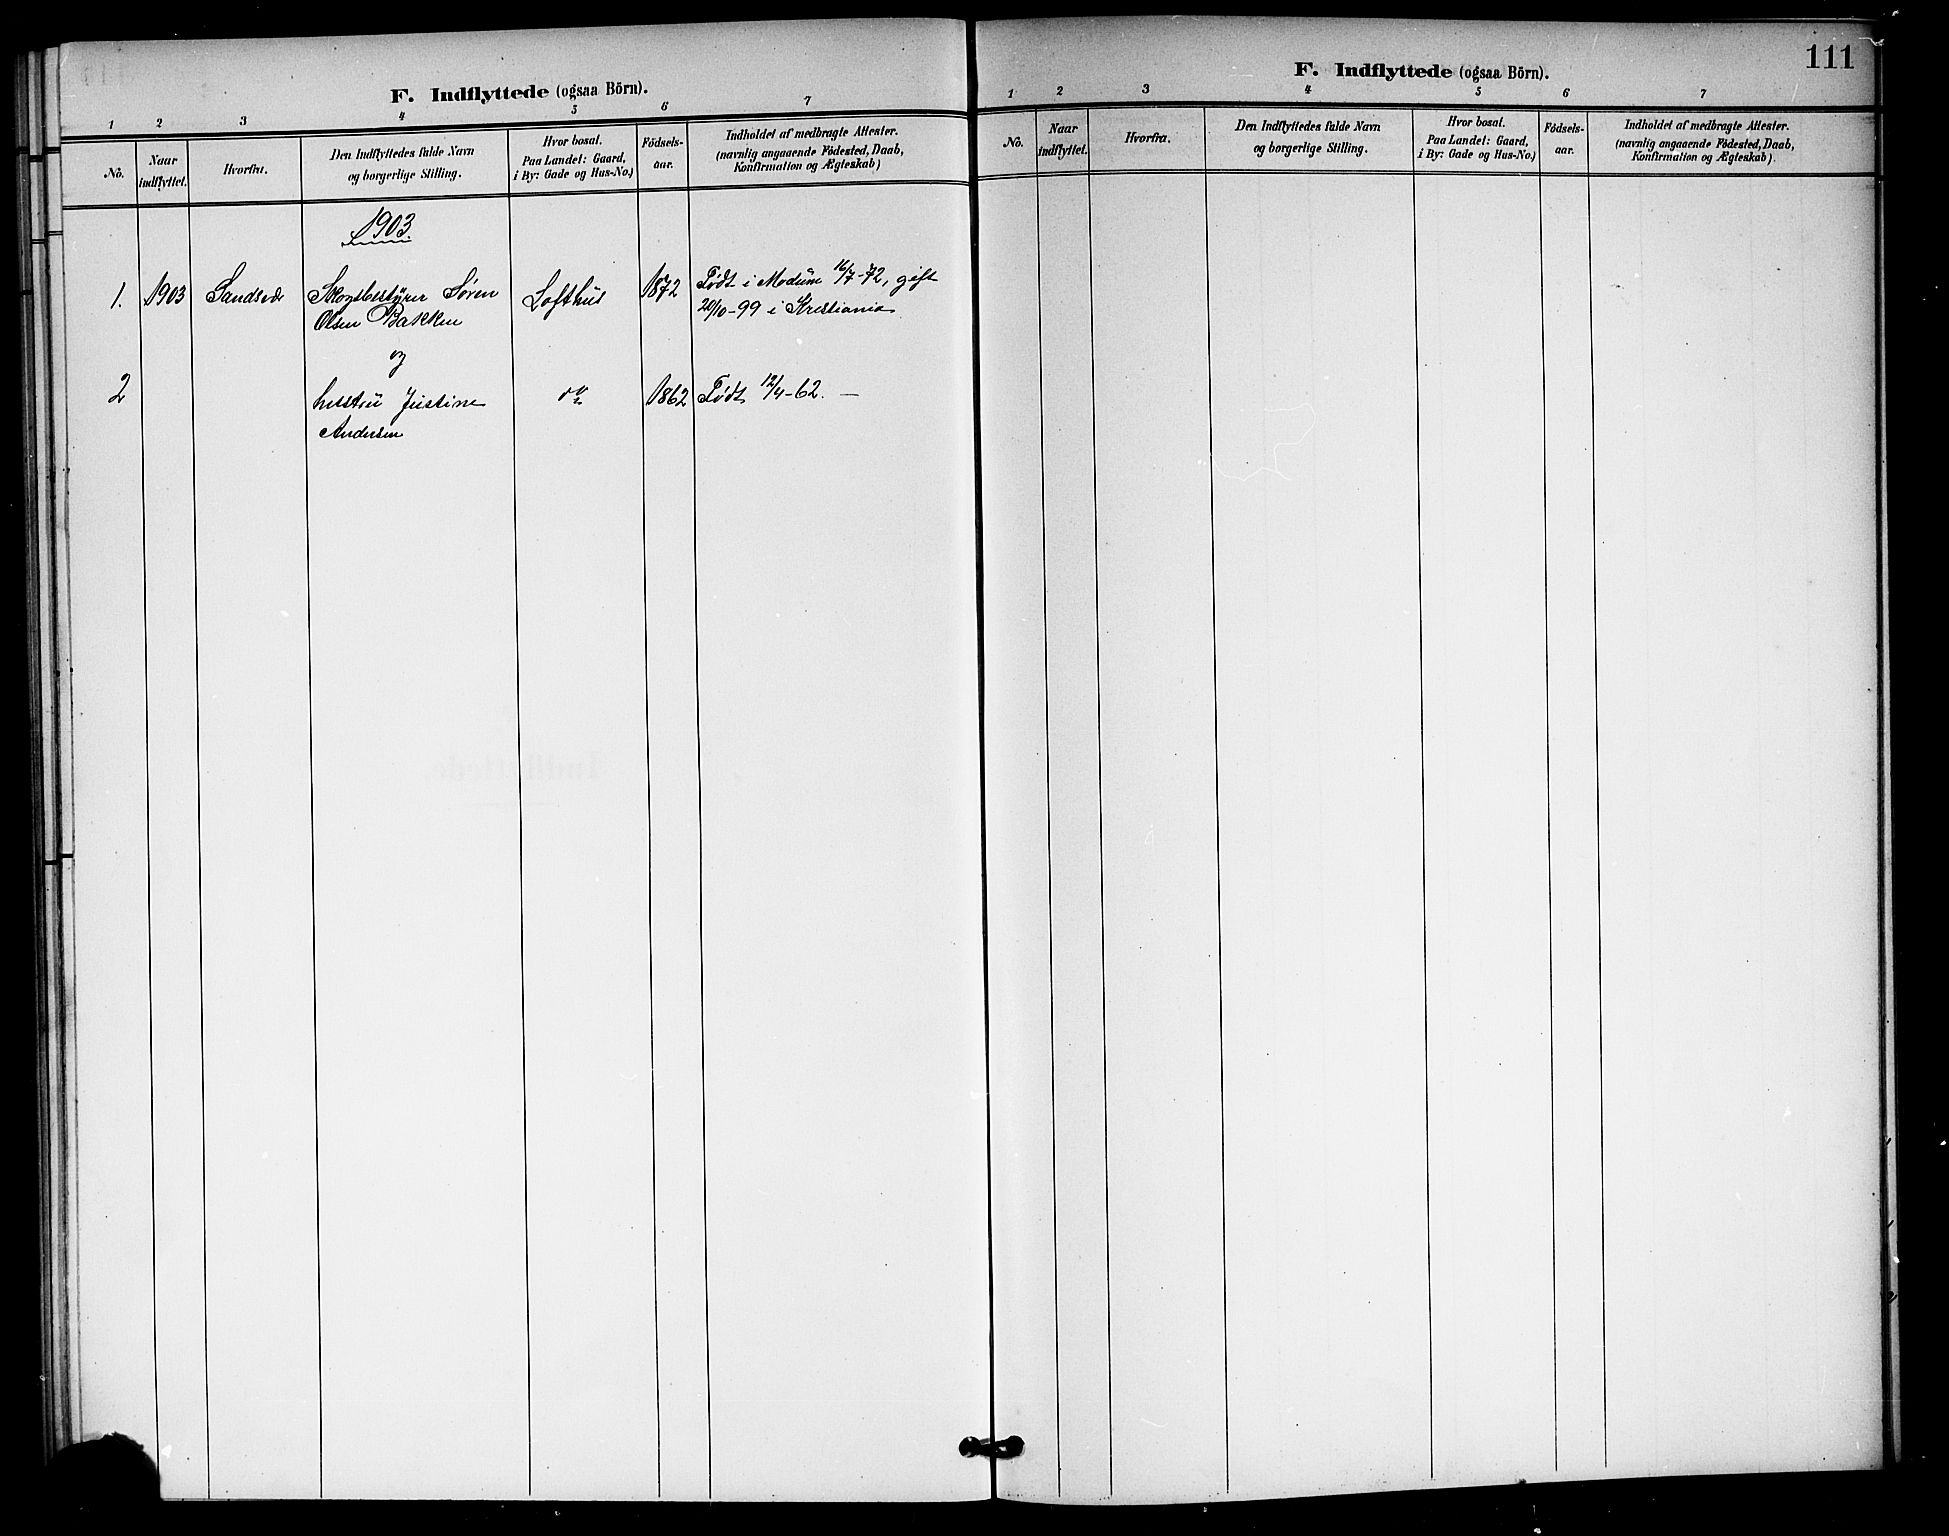 F. Indflyttede (ogsaa Börn).
1 2 3 4 5 6 7
No.
Naar
indflyttet.
Hvorfra.
Den Indflyttedes fulde Navn
og borgerlige Stilling.
Hvor bosat.
Paa Landet: Gaard,
i By: Gade og Hus-No.)
Födsels-
aar.
Indholdet af medbragte Attester.
(navnlig angaaende Födested, Daab,
Konfirmation og Ægteskab)
1903
1. 1903 Sandsvær Skogsbestyrer Søren Lofthus 1872 Født i Modum 16/7-72, gift
Olsen Bakken 20/10-99 i Kristiania
og
2 hustru Justine do 1862 Født 12/4-62. —
Andersen
111
F. Indflyttede (ogsaa Börn).
1 2 3 4 5 6 7
No.
Naar
indflyttet.
Hvorfra.
Den Indflyttedes fulde Navn
og borgerlige Stilling.
Hvor bosat.
Paa Landet: Gaard,
i By: Gade og Hus-No.)
Födsels-
aar.
Indholdet af medbragte Attester.
(navnlig angaaende Födested, Daab,
Konfirmation og Ægteskab).